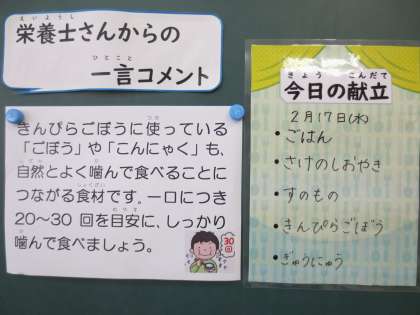 えいようし
栄養士さんからの
ひとこと
一言コメント
きんぴらごぼうに使っている
「ごぼう」や「こんにゃく」も、
自然とよく噛んで食べることに
つながる食材です。一口につき
20〜30回を目安に、しっかり
噛んで食べましょう。
30回
きょう こんだて
今日の献立
2月17日(水)
・ごはん
・さけのしおやき
・すのもの
・きんぴらごぼう
・ぎゅうにゅう